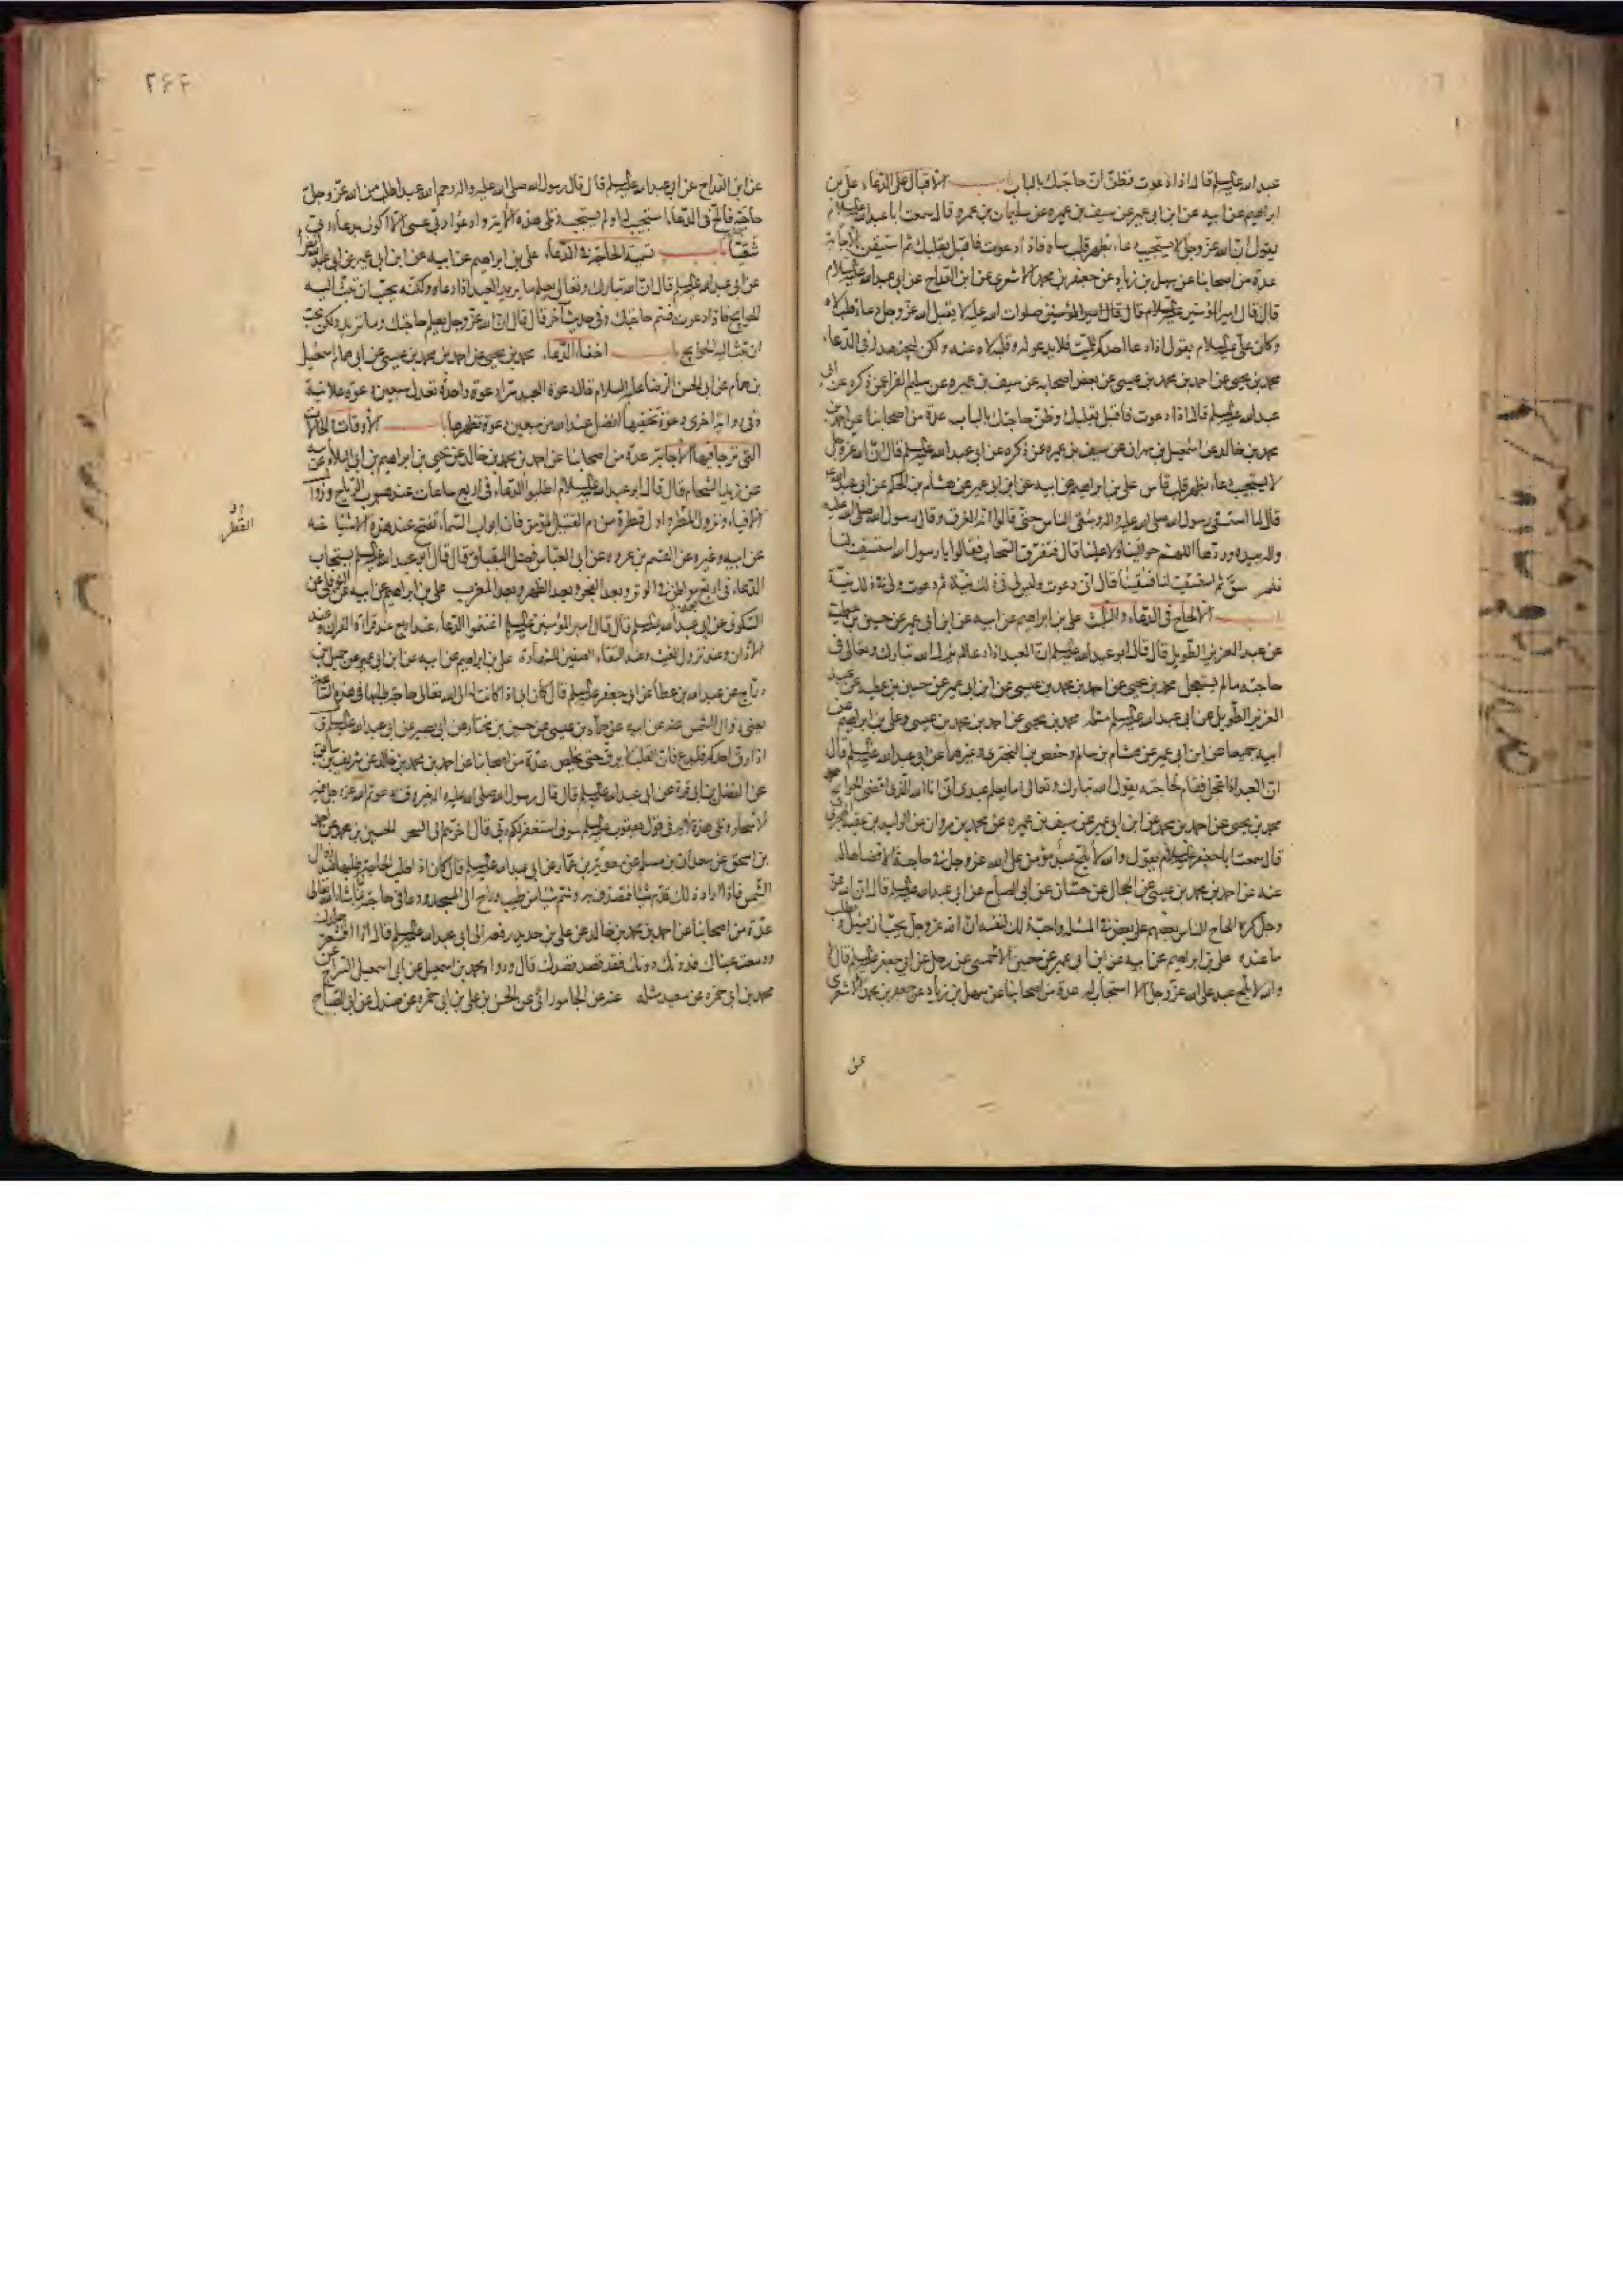 عبد الله عليه السلم قال اذا دعوت فظن ان حاجتك بالباب باب الاقبال على الدعاء على بن
ابراهيم عن ابيه عن ابن ابى عمير عن سيف بن عميره عن سليمان بن عمرو قال سمعت ابا عبد الله عليه السلام
يقول ان الله عز وجل لا يستجيب دعاء بظهر قلب ساه فاذا دعوت فاقبل بقلبك ثم استيقن الاجابة
عدة من اصحابنا عن سهل بن زياد عن جعفر بن محمد الاشعرى عن ابن القداح عن ابى عبد الله عليه السلام
قال قال امير المؤمنين عليه السلام قال قال امير المؤمنين صلوات الله عليه لا يقبل الله عز وجل دعاء قلب لاه
وكان على عليه السلام يقول اذا دعا احدكم للميت فلا يدعو له وقلبه لاه عنه ولكن ليجتهد له فى الدعاء
محمد بن يحيى عن احمد بن محمد بن عيسى عن بعض اصحابه عن سيف بن عميره عن سليم الفرا عمن ذكره عن ابى
عبد الله عليه السلم قال اذا دعوت فاقبل بقلبك وظن حاجتك بالباب عدة من اصحابنا عن احمد بن
محمد بن خالد عن اسمعيل بن مهران عن سيف بن عميره عمن ذكره عن ابى عبد الله عليه السلم قال ان الله عز وجل
لا يستجيب دعاء بظهر قلب قاس على بن ابراهيم عن ابيه عن ابن ابى عمير عن هشام بن الحكم عن ابى عبد الله
قال لما استسقى رسول الله صلى الله عليه واله وسقى الناس حتى قالوا انه الغرق وقال رسول الله صلى الله عليه
واله بيده وردها اللهم حوالينا ولا علينا قال فتفرق السحاب فقالوا يا رسول الله استسقيت لنا
فلم نسق ثم استسقيت لنا فسقينا قال انى دعوت وليس لى فى ذلك نية ثم دعوت ولى فى ذلك نية
باب الالحاح فى الدعاء والتلبث على بن ابراهيم عن ابيه عن ابن ابى عمير عن حسين بن عطية
عن عبد العزيز الطويل قال قال ابو عبد الله عليه السلم ان العبد اذا دعا لم يزل الله تبارك وتعالى فى
حاجته ما لم يستعجل محمد بن يحيى عن احمد بن محمد بن عيسى عن ابن ابى عمير عن حسين بن عطيه عن عبد
العزيز الطويل عن ابى عبد الله عليه السلم مثله محمد بن يحيى عن احمد بن محمد بن عيسى وعلى بن ابراهيم عن
ابيه جميعا عن ابن ابى عمير عن هشام بن سالم وحفص بن البخترى وغيرهما عن ابى عبد الله عليه السلم قال
ان العبد اذا عجل فقام لحاجته يقول الله تبارك وتعالى اما يعلم عبدى انى انا الله الذى اقضى الحوائج
محمد بن يحيى عن احمد بن محمد عن ابن ابى عمير عن سيف بن عميره عن محمد بن مروان عن الوليد بن عقبه الهجرى
قال سمعت ابا جعفر عليه السلام يقول والله لا يلح عبد مؤمن على الله عز وجل فى حاجة الا قضاها له
عنه عن احمد بن محمد بن عيسى عن الحجال عن حسان عن ابى الصباح عن ابى عبد الله عليه السلم قال ان الله عز
وجل كره الحاح الناس بعضهم على بعض فى المسئلة واحب ذلك لنفسه ان الله عز وجل يحب ان يسئل ويطلب
ما عنده على بن ابراهيم عن ابيه عن ابن ابى عمير عن حسين الاحمسى عن رجل عن ابى جعفر عليه السلم قال
والله لا يلح عبد على الله عز وجل الا استجاب له عدة من اصحابنا عن سهل بن زياد عن جعفر بن محمد الاشعرى
عن
٢۶۴
عن ابن القداح عن ابى عبد الله عليه السلم قال قال رسول الله صلى الله عليه واله رحم الله عبدا طلب من الله عز وجل
حاجة فالح فى الدعاء استجيب له او لم يستجب وتلى هذه الاية وادعوا ربى عسى الا اكون بدعاء ربى
شقيا باب تسمية الحاجة فى الدعاء على بن ابراهيم عن ابيه عن ابن ابى عمير عن ابى عبد الله الفرا
عن ابى عبد الله عليه السلم قال ان الله تبارك وتعالى يعلم ما يريد العبد اذا دعاه ولكنه يحب ان تبث اليه
الحوايج فاذا دعوت فسم حاجتك وفى حديث آخر قال قال ان الله عز وجل يعلم حاجتك وما تريد ولكن يحب
ان تبث اليه الحوايج باب اخفاء الدعاء محمد بن يحيى عن احمد بن محمد بن عيسى عن ابى همام اسمعيل
بن همام عن ابى الحسن الرضا عليه السلام قال دعوة العبد سرا دعوة واحدة تعدل سبعين دعوة علانية
وفى رواية اخرى دعوة تخفيها افضل عند الله من سبعين دعوة تظهرها باب الاوقات والحالات
التى ترجا فيها الاجابة عدة من اصحابنا عن احمد بن محمد بن خالد عن يحيى بن ابراهيم بن ابى البلاد عن ابيه
عن زيد الشحام قال قال ابو عبد الله عليه السلام اطلبوا الدعاء فى اربع ساعات عند هبوب الرياح وزوال
الافياء ونزول المطر واول قطرة من دم القتيل المؤمن فان ابواب السماء تفتح عند هذه الاشياء عنه
ون
القطر
عن ابيه وغيره عن القسم بن عروه عن ابى العباس فضل البقباق قال قال ابو عبد الله عليه السلم يستجاب
الدعاء فى اربع مواطن فى الوتر وبعد الفجر وبعد الظهر وبعد المغرب على بن ابراهيم عن ابيه عن النوفلى عن
السكونى عن ابى عبد الله عليه السلم قال قال امير المؤمنين عليه السلم اغتنموا الدعاء عند اربع عند قراءة القران وعند
الاذان وعند نزول الغيث وعند التقاء الصفين للشهادة على بن ابراهيم عن ابيه عن ابن ابى عمير عن جميل بن
دراج عن عبد الله بن عطا عن ابى جعفر عليه السلم قال كان ابى اذا كانت له الى الله تعالى حاجة طلبها فى هذه الساعة
يعنى زوال الشمس عنه عن ابيه عن حماد بن عيسى عن حسين بن مختار عن ابى بصير عن ابى عبد الله عليه السلم ق
اذا رق احدكم فليدع فان القلب لا يرق حتى يخلص عدة من اصحابنا عن احمد بن محمد بن خالد عن شريف بن سابق
عن الفضل بن ابى قرة عن ابى عبد الله عليه السلم قال قال رسول الله صلى الله عليه واله خير وقت دعوتم الله عز وجل فيه
الاسحار وتلى هذه الاية فى قول يعقوب عليه السلم سوف استغفر لكم ربى قال اخرهم الى السحر الحسين بن محمد عن احمد
بن اسحق عن سعدان بن مسلم عن معوية بن عمار عن ابى عبد الله عليه السلم قال كان اذا طلب الحاجة طلبها عند زوال
الشمس فاذا اراد ذلك قدم شيئا فتصدق به وشم شيئا من طيب وراح الى المسجد ودعا فى حاجته بما شاء الله تعالى
عدة من اصحابنا عن احمد بن محمد بن خالد عن على بن حديد رفعه الى ابى عبد الله عليه السلم قال اذا اقشعر جلدك
ودمعت عيناك فدونك دونك فقد قصد قصدك قال ورواه محمد بن اسمعيل عن ابى اسمعيل السراج عن
محمد بن ابى حمزه عن سعيد مثله عنه عن الجامورانى عن الحسن بن على بن ابى حمزه عن صندل عن ابى الصباح